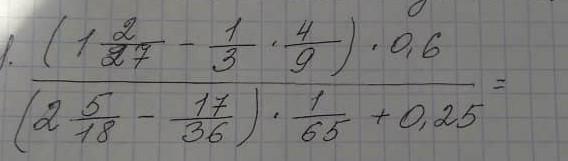 1. (1 2/27 - 1/3 · 4/9) · 0,6
(2 5/18 - 17/36) · 1/65 + 0,25 =